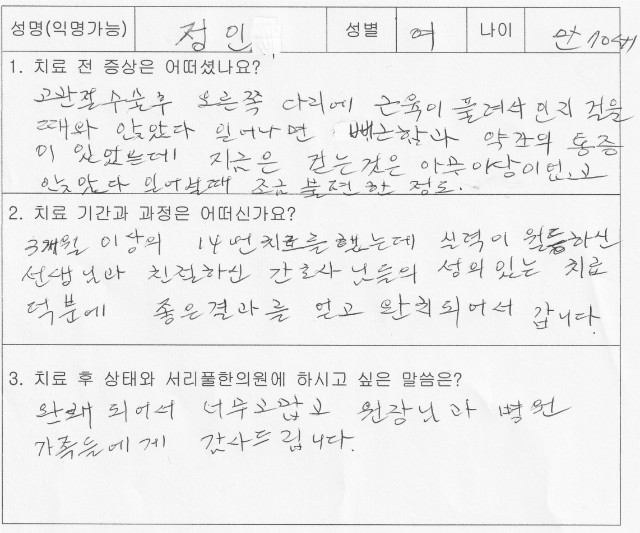 성명(익명가능) 정인 성별 여 나이 만 70세
1. 치료 전 증상은 어떠셨나요?
고관절수술후 오른쪽 다리에 근육이 풀려서 인지 걸을
때와 앉았다 일어나면 뻐근함과 약간의 통증
이 있었는데 지금은 걷는것은 아무이상이없고
앉았다 일어날때 조금 불편한 정도.
2. 치료 기간과 과정은 어떠신가요?
3개월 이상의 14번치료를했는데 실력이 월등하신
선생님과 친절하신 간호사님들의 성의있는 치료
덕분에 좋은결과를 얻고 완치되어서 갑니다.
3. 치료 후 상태와 서리풀한의원에 하시고 싶은 말씀은?
완쾌 되어서 너무고맙고 원장님과 병원
가족들에게 감사드립니다.